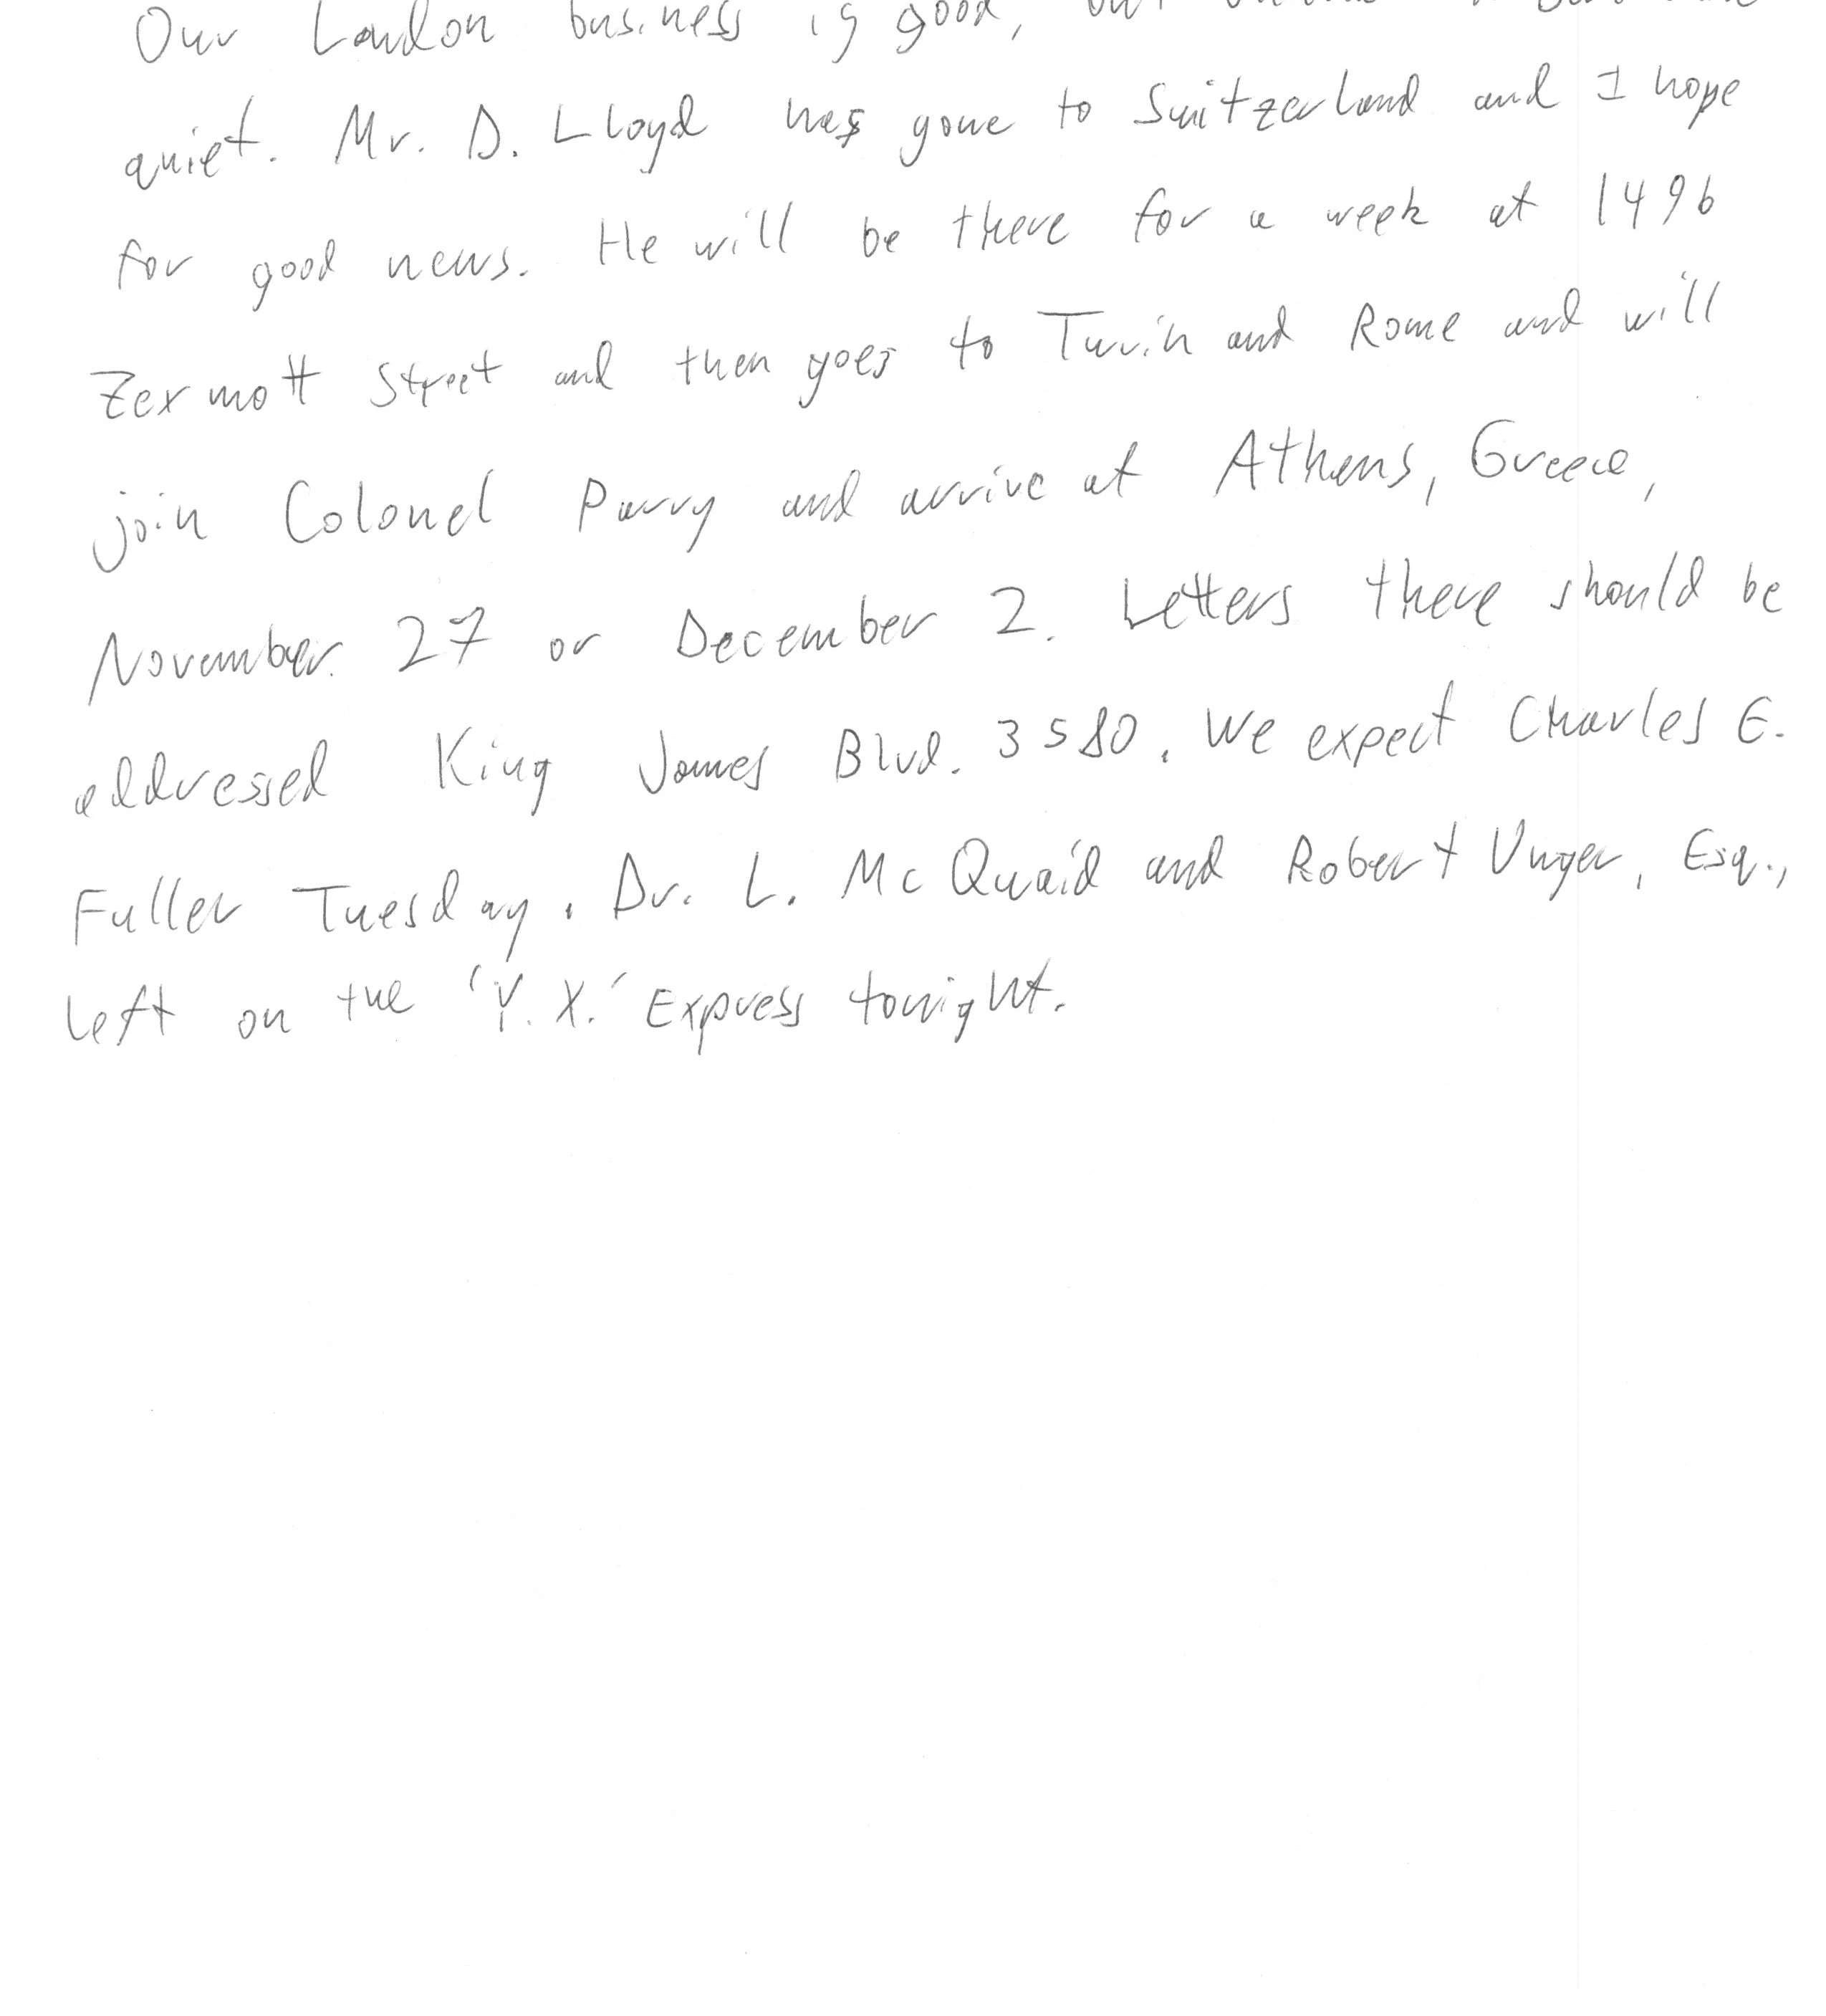 Our London business is good,
quiet. Mr. D. Lloyd has gone to Switzerland and I hope
for good news. He will be there for a week at 1496
Zermott Street and then goes to Turin and Rome and will
join Colonel Parry and arrive at Athens, Greece,
November 27 or December 2. Letters there should be
addressed King James Blvd. 3580. We expect Charles E.
Fuller Tuesday. Dr. L. McQuaid and Robert Unger, Esq.,
left on the 'Y. X.' Express tonight.